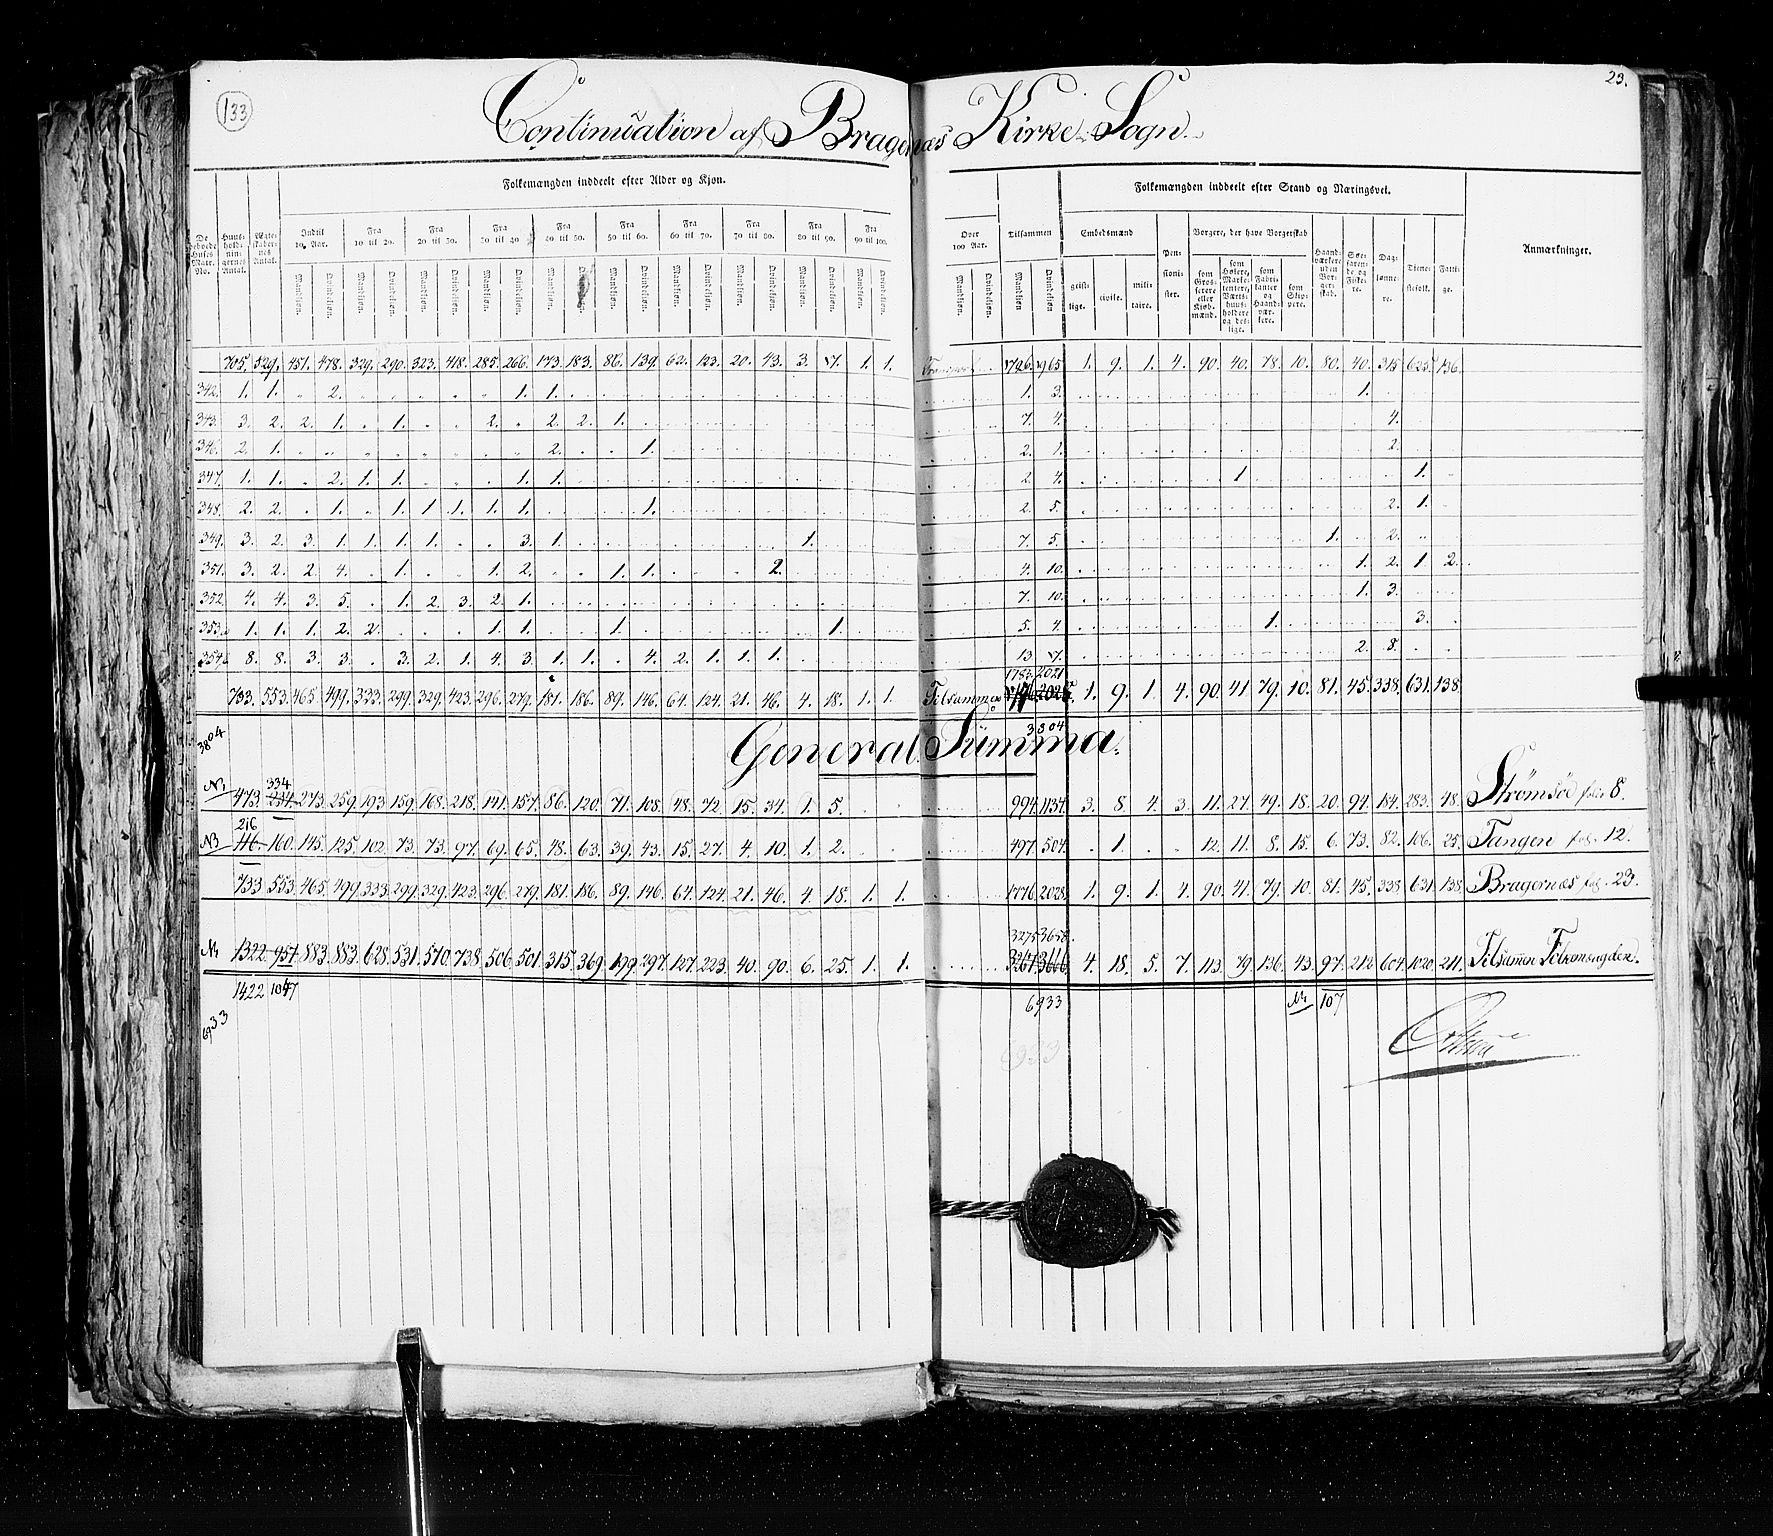 133
23.
Continuation af Bragernæs Kirke-Sogn.
Folkemængden inddeelt efter Alder og Kjøn.
Folkemængden inddeelt efter Stand og Næringsvei.
De beboede Huses Matr. No.
Huus-hold-nin-gernes Antal.
Ægte-skaber-nes Antal.
Indtil 10 Aar.
Fra 10 til 20.
Fra 20 til 30.
Fra 30 til 40.
Fra 40 til 50.
Fra 50 til 60.
Fra 60 til 70.
Fra 70 til 80.
Fra 80 til 90.
Fra 90 til 100.
Over 100 Aar.
Tilsammen
Mandkiøn. Qvindekiøn.
Embedsmænd
geist-lige. civile. mili-taire.
Pen-sioni-ster.
Borgere, der have Borgerskab
som Gros-serere eller Kjøb-mænd.
som Høkere, Marke-tentere, Værts-huus-holdere og des-lige.
som Fabri-kanter og Haand-vær-kere.
som Skip-pere.
Haand-værkere uden Bor-ger-skab.
Søe-faren-de og Fiske-re.
Dag-lønne-re.
Tiene-stefolk.
Fatti-ge.
Anmærkninger.
705. 529. 457. 478. 329. 290. 323. 418. 285. 266. 173. 183. 86. 139. 62. 123. 20. 43. 3. 17. 1. 1. Transport 1736. 1965 1. 9. 1. 4. 90. 40. 78. 10. 80. 40. 315 625. 136.
342. 1. 1. 2. 1. 1. 1. 3. 1.
343. 3. 2. 2. 1. 1. 2. 2. 2. 1. 7. 4. 4.
346. 2. 1. 2. 1. 2. 1. 2.
347. 1. 1. 2. 1. 1. 1. 1. 2. 4. 1 1.
348. 2. 2. 1. 1. 1 1. 1. 1. 1. 2. 5. 2. 1.
349. 3. 2. 3. 1. 1. 1. 1. 3. 1. 1. 7. 5. 1. 2.
351. 3. 2. 2. 4. 1. 1. 2. 1. 1. 2. 4. 10. 1. 2. 1 2.
352. 4. 4. 3. 5. 1. 2. 3. 2. 1. 7. 10. 1. 3.
353. 1. 1. 1. 2. 2. 1. 1. 1. 1. 5. 4. 1. 3.
354. 8. 8. 3. 3. 3. 2. 1. 4. 3. 1. 1. 4. 2. 1. 1. 1. 13 17. 2. 8.
1783. 2021
733. 553. 465 499. 333. 299. 329. 423. 296. 279. 181. 186. 89. 146. 64. 124. 21. 46. 4. 18. 1. 1. Tilsammen 1. 9. 1. 4. 90 41. 79. 10. 81. 45. 338. 631. 138.
3804
3804
General Summa.
334
473. 234. 273. 259. 193 159. 168. 218. 141. 157. 86. 120. 71. 108. 48. 72. 15. 34. 1. 5. 994. 1134. 3. 8. 4. 3. 11. 27. 49. 18. 20. 94. 184. 283. 48. Strømsöe fol. 8.
216
NB 46. 160. 145. 125. 102. 73. 73. 97. 69. 65. 48. 63. 39. 43. 15. 27. 4. 10. 1. 2. 497. 504. 1. 12. 11. 8. 15. 6. 73. 82. 106. 25. Tangen fol. 12.
733 553. 465. 499. 333. 299. 329. 423. 296. 279. 181. 186. 89. 146. 64. 124. 21. 46. 4. 18. 1. 1. 1776. 2028. 1. 9. 1. 4. 90. 41. 79. 10. 81. 45. 338 631. 138. Bragernæs fol. 23.
3275 3658.
1322. 957. 883. 883. 628. 531. 570. 738. 506. 501. 315. 369. 199. 297. 127. 223. 40. 90. 6. 25. 1. 1. 3267. 3666. 4. 18. 5. 7. 113. 79. 136. 43. 97. 212. 604. 1020. 211. Tilsamen Folkemængden.
1422 1047
6933
107
6933
6933